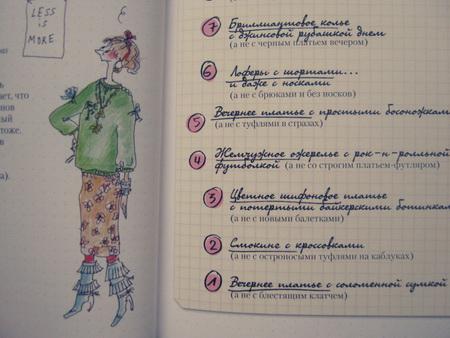 LESS
is
MORE
ает, что
нов
ый
тоже.
в
а).
7 Бриллиантовое колье
с джинсовой рубашкой днем
(а не с черным платьем вечером)
6 Лоферы с шортами...
и даже с носками
(а не с брюками и без носков)
5 Вечернее платье с простыми босоножкам
(а не с туфлями в стразах)
4 Жемчужное ожерелье с рок-н-ролльной
футболкой (а не со строгим платьем-футляром)
3 Цветное шифоновое платье
с потертыми байкерскими ботинкам
(а не с новыми балетками)
2 Смокинг с кроссовками
(а не с остроносыми туфлями на каблуках)
1 Вечернее платье с соломенной сумкой
(а не с блестящим клатчем)